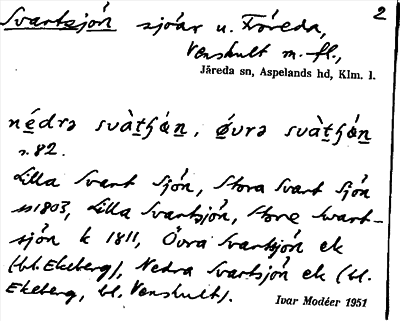 2
Svartsjón sjóar u. Fröreda,
Venshult m. fl.,
Järeda sn, Aspelands hd, Klm. l.
nédrə svàtʃón, óvrə svàtʃón
s. 82.
Lilla Svart Sjón, Stora Svart Sjón
1803, Lilla Svartsjón, Store Svart-
sjón k 1811, Övra Svartsjón ek
(bl. Ekeberg), Nedra Svartsjón ek (bl.
Ekeberg, bl. Venshult).
Ivar Modéer 1951